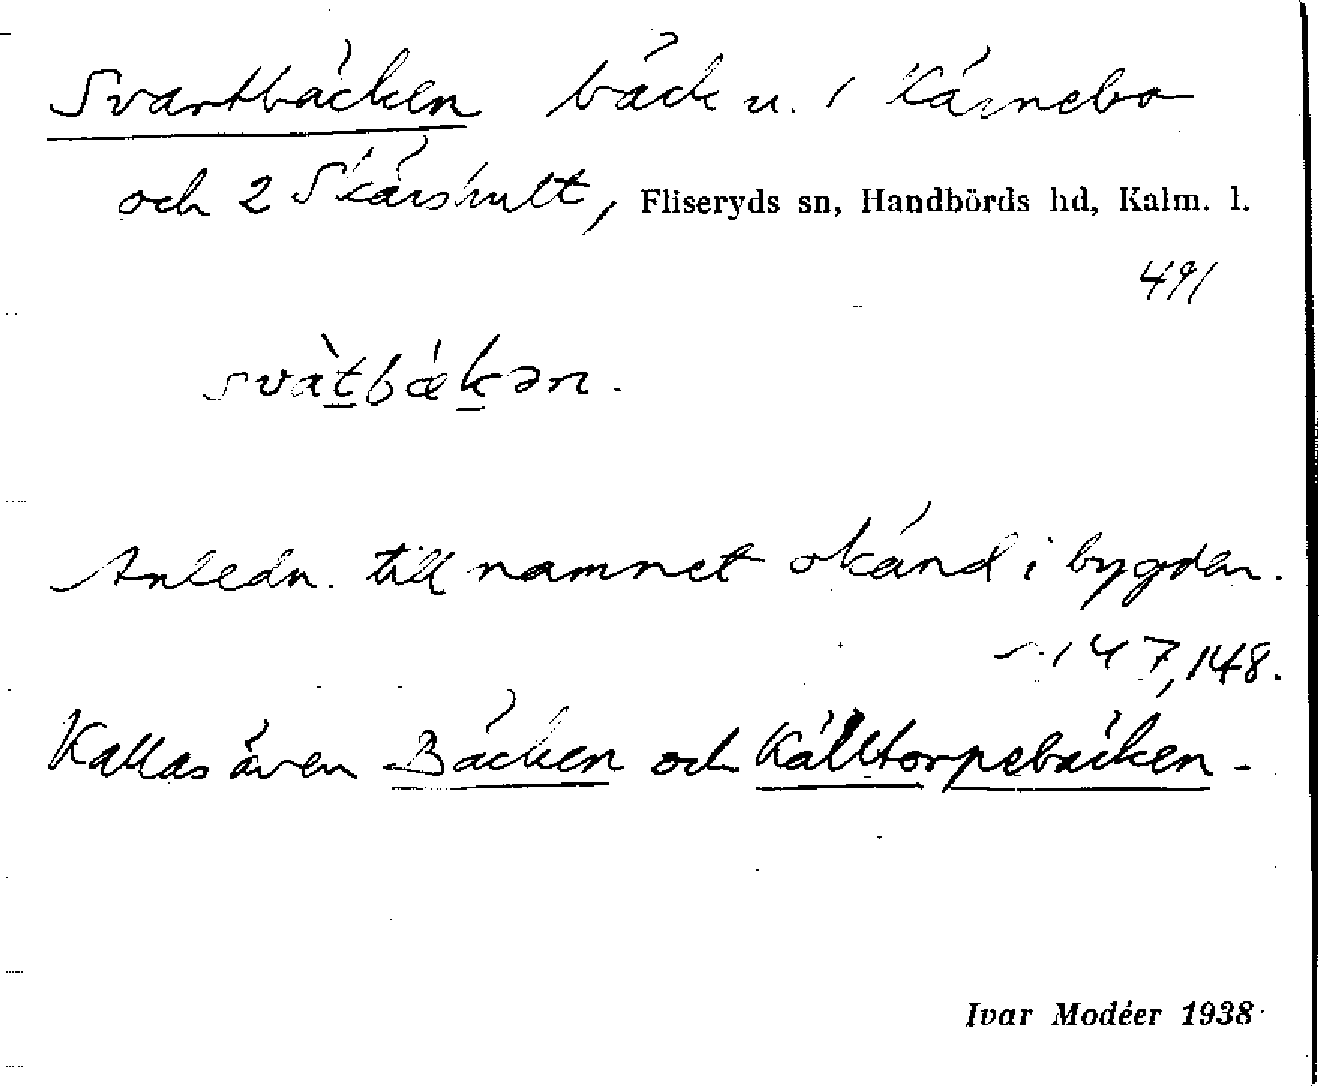 Svartbäcken bäck u. 1 Kärnebo
och 2 Skärshult, Fliseryds sn, Handbörds hd, Kalm. l.
491
svàtbǽkən.
Anledn. till namnet okänd i bygden.
147, 148.
Kallas även Bäcken och Källtorpebäcken.
Ivar Modéer 1938